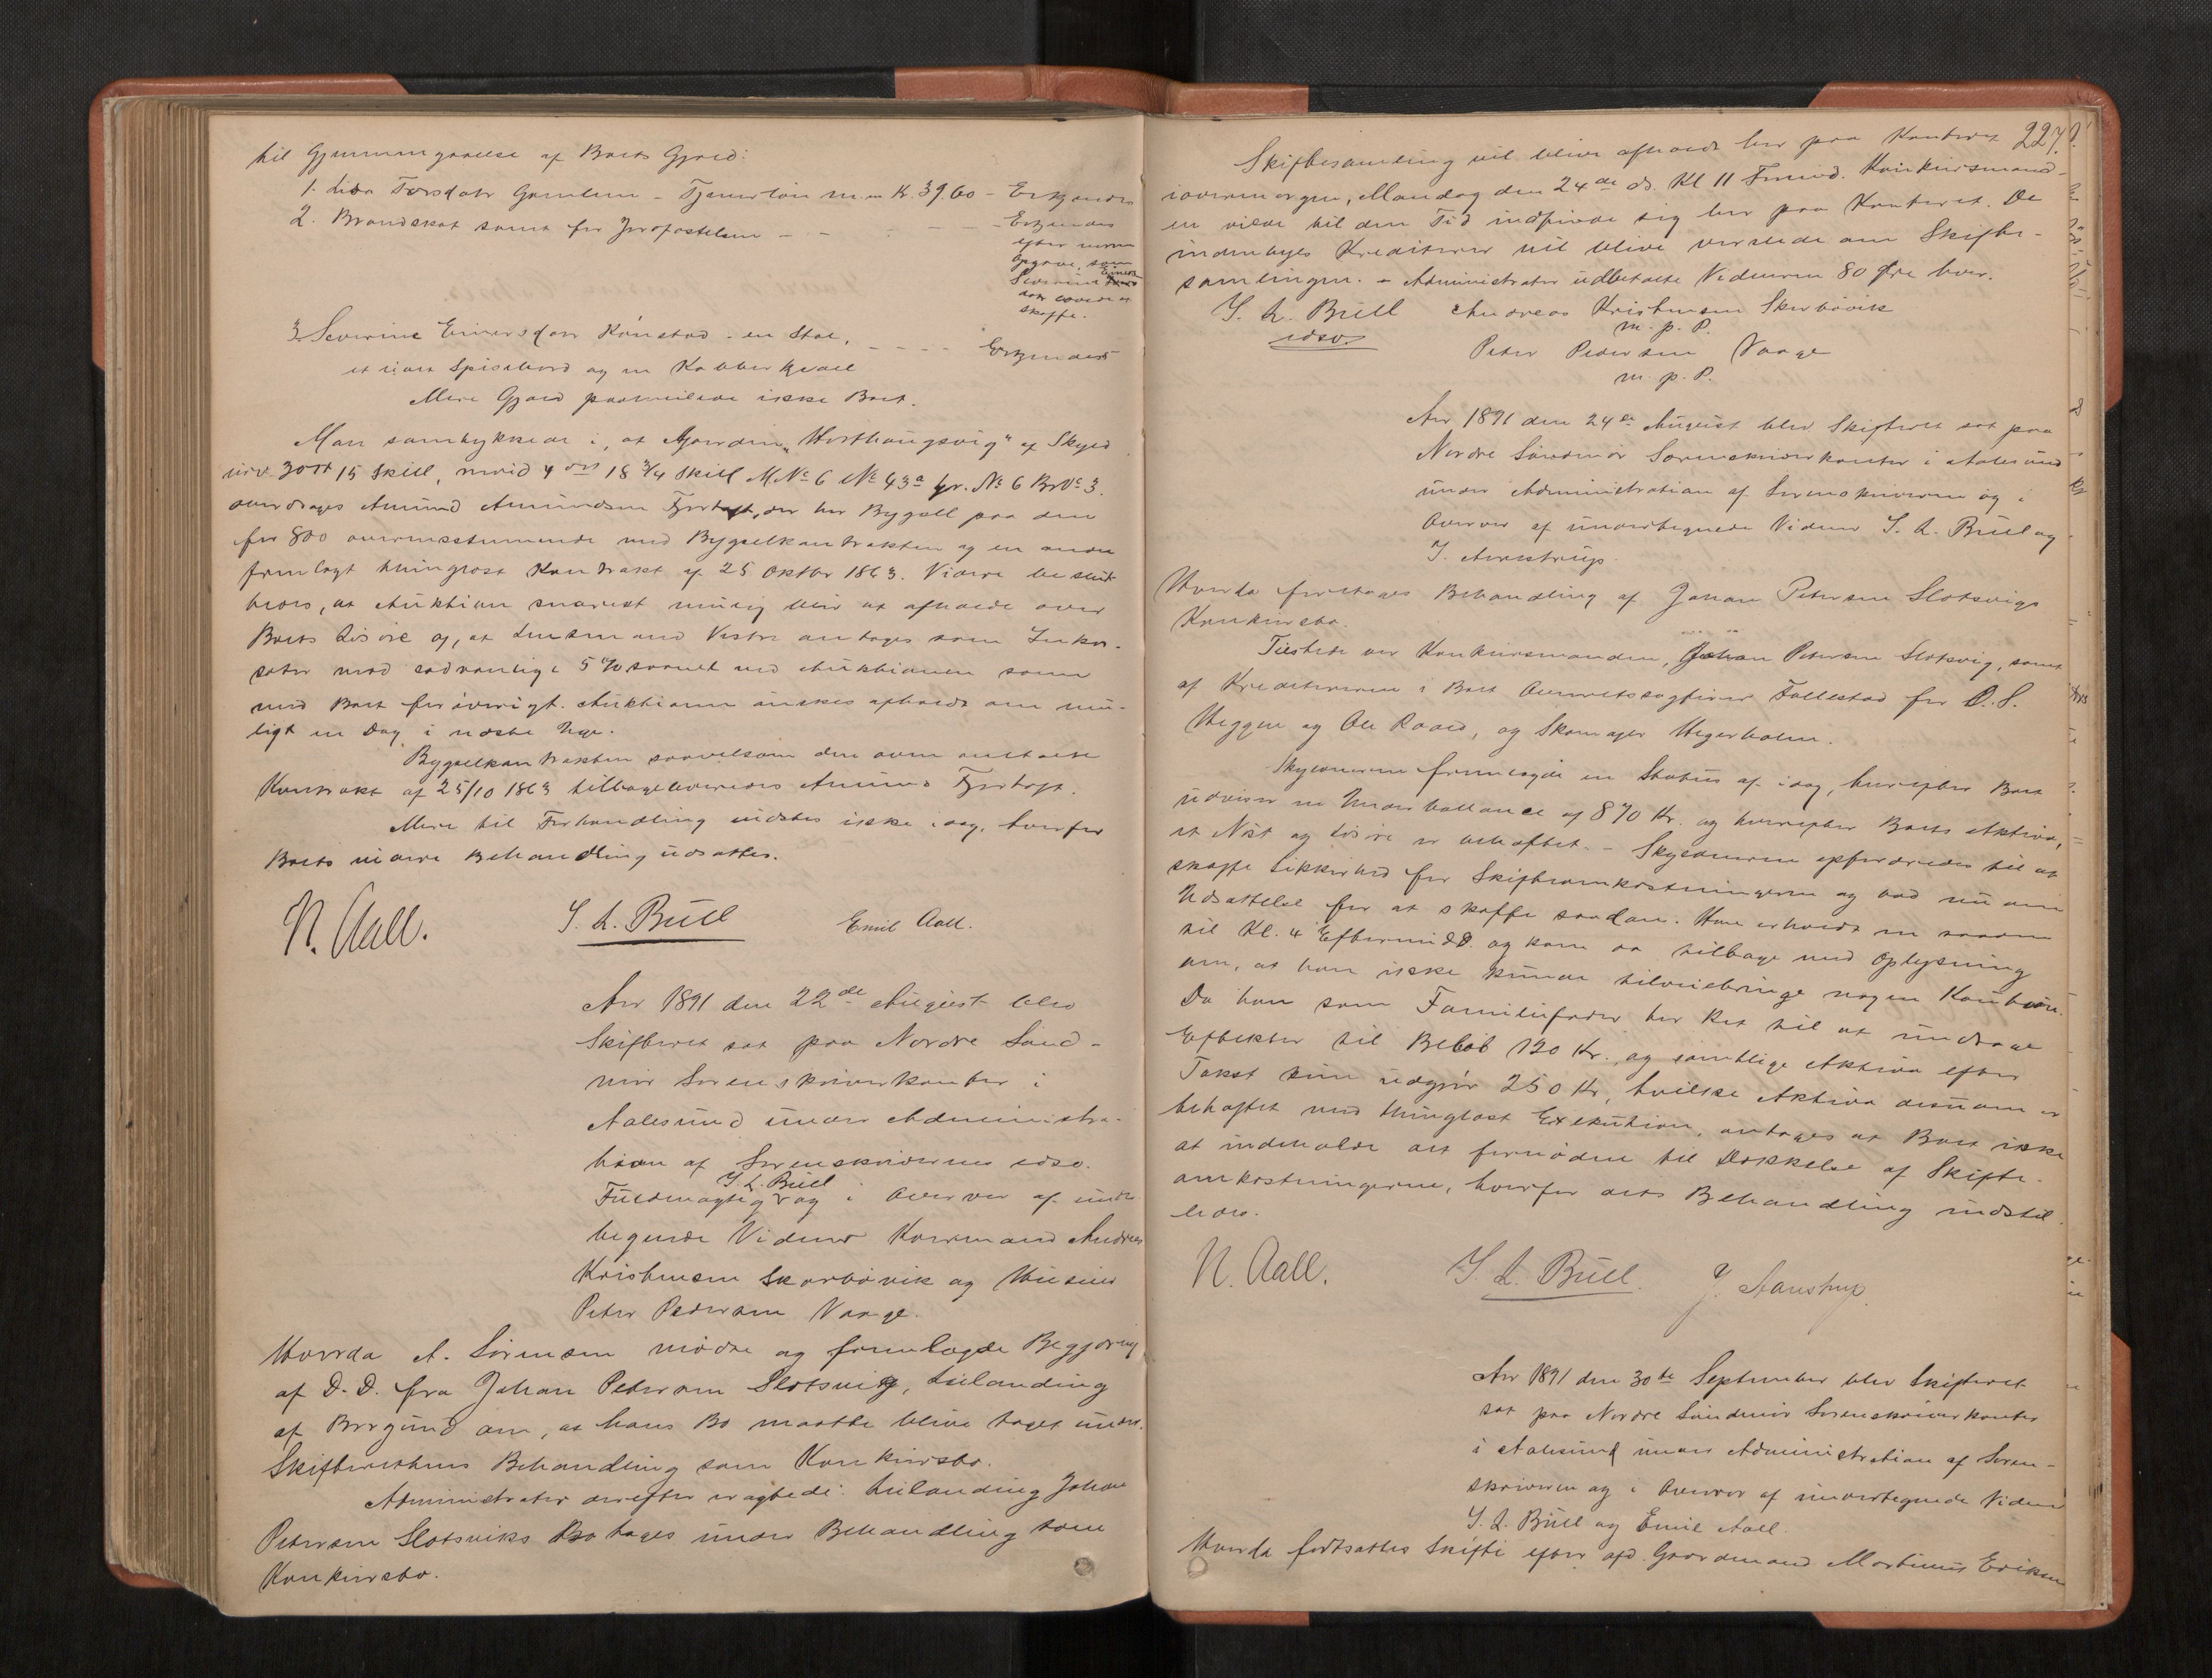 til Gjennemgaaelse af Boets Gjæld:
1. Lisa Torsdatr Gamlem - Tjenerløn m.m Kr. 39.60 - Erkjendes
2. Brandskat samt for Jordafstelsen - - - - - Erkjendes
efter nærm
Opgave, som
Severine Einers
datr lovede at
skaffe.
3 Severine Einersdatr Rønstad - en Stol, - - - - Erkjendes
et lidet Spisebord og en Kobberkjedel
Mere Gjæld paameldtes ikke Boet.
Man samtykkede i, at Gaarden "Horthaugsvig" af Skyld
urev. 3 ort 15 Skill, revid 4 ort 18 3/4 Skill M.No 6 No 43a Gr. No 6 BrNo 3.
overdrages Amund Amundsen Fjortoft, der har Bygsel paa den
for 800 overensstemmende med Bygselkontrakten og en anden
fremlagt thinglæst Kontrakt af 25 Oktbr 1863. Videre beslut-
tedes, at Auktion snarest mulig blir at afholde over
Boets Løsøre og, at Lensmand Vestre antages som Inkas-
sator mod sædvanlige 5 % saavel ved Auktionen som
ved Boet forøvrigt. Auktionen ønskes afholdt om mu-
ligt en Dag i næste Uge.
Bygselkontrakten saavelsom den oven anførte
Kontrakt af 25/10 1863 tilbageleveredes Amund Fjortoft.
Mere til Forhandling vidstes ikke idag, hvorfor
Boets videre Behandling udsattes.
N. Aall. S. L. Bull Emil Aall.
Aar 1891 den 22de August blev
Skifteret sat paa Nordre Sønd-
mør Sorenskriverkontor i
Aalesund under Administra-
tion af Sorenskriverens edsv.
Fuldmægtig S. L. Bull og i Overvær af under-
tegnede Vidner Kornmand Andreas
Kristensen Skorbøvik og Husmd
Peter Pedersen Vaage.
Hvorda A. Sørensen mødte og fremlagde Begjæring
af D. D. fra Johan Petersen Slotsvig, Leilænding
af Borgund om, at hans Bo maatte blive taget under
Skifterettens Behandling som Konkursbo.
Administrator derefter eragtede: Leilænding Johan
Petersen Slotsviks Bo tages under Behandling som
Konkursbo.
227.
Skiftesamling vil blive afholdt her paa Kontoret
iovermorgen, Mandag den 24de ds. Kl 11 Formd. Konkursmand-
en vilde til den Tid indfinde sig her paa Kontoret. De
indenbyes Kreditorer vil blive varslede om Skifte-
samlingen. - Administrator udbetalte Vidnerne 80 Øre hver.
S. L. Bull Andreas Kristensen Skorbøvik
edsv. m. p. P.
Peter Pedersen Vaage
m. p. P.
Aar 1891 den 24de August blev Skifteret sat paa
Nordre Søndmør Sorenskriverkontor i Aalesund
under Administration af Sorenskriveren og i
Overvær af undertegnede Vidner S. L. Bull og
J. Aarestrup.
Hvorda foretages Behandling af Johan Petersen Slotsvigs
Konkursbo.
Tilstede var Konkursmanden, Johan Petersen Slotsvig, samt
af Kreditorerne i Boet Overretssagfører Fallestad for O. S.
Heggen og Ole Raaed, og Skomager Hegerholm.
Skyldneren fremlagde en Status af idag, hvorefter Boet
udviser en Underballance af 870 Kr. og hvorefter Boets Aktiva,
et Nøst og Løsøre er beheftet. - Skyldneren opfordredes til at
skaffe Sikkerhed for Skifteomkostningerne og bad nu om
Udsættelse for at skaffe saadan. Han erholdt en saadan
til Kl. 4 Eftermidd. og kom da tilbage med Oplysning
om, at han ikke kunde tilveiebringe nogen Kaution.
Da han som Familiefader har Ret til at undtage
Effekter til Beløb 120 Kr., og samtlige Aktiva efter
Takst kun udgjør 250 Kr., hvilke Aktiva desuden er
beheftet med thinglæst Exekution, antages at Boet ikke
at indeholde det fornødne til Dækkelse af Skifte-
omkostningerne, hvorfor dets Behandling indstil-
ledes.
N. Aall. S. L. Bull. J. Aarestrup.
Aar 1891 den 30te September blev Skifteret
sat paa Nordre Søndmør Sorenskriverkontor
i Aalesund under Administration af Soren-
skriveren og i Overvær af undertegnede Vidner
S. L. Bull og Emil Aall.
Hvorda fortsattes Skifte efter afd. Gaardmand Martinus Eriksen